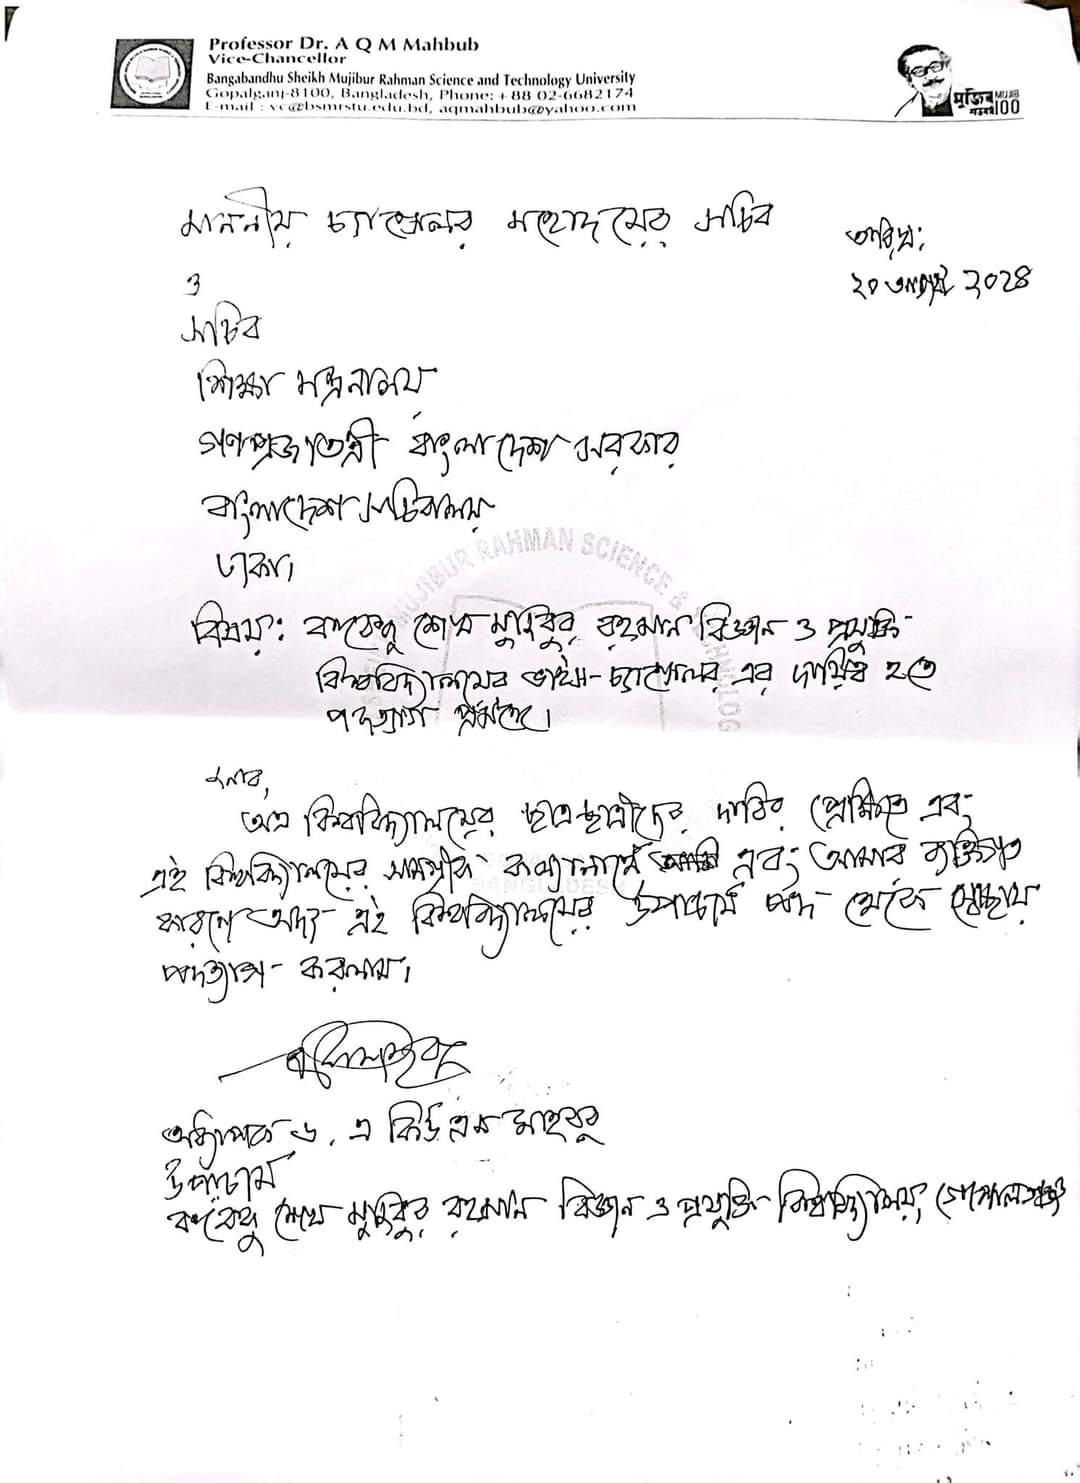 Professor Dr. A Q M Mahbub
Vice-Chancellor
Bangabandhu Sheikh Mujibur Rahman Science and Technology University
Gopalganj-8100, Bangladesh, Phone: + 88 02-6682174
E-mail : vc@bsmrstu.edu.bd, aqmahbub@yahoo.com
মুজিব MUJIB
শতবর্ষ 100
মাননীয় চ্যান্সেলর মহোদয়ের সচিব
তারিখ:
২০ আগস্ট ২০২৪
ও
সচিব
শিক্ষা মন্ত্রনালয়
গণপ্রজাতন্ত্রী বাংলাদেশ সরকার
বাংলাদেশ সচিবালয়
ঢাকা।
MUJIBUR RAHMAN SCIENCE & TECHNOLOG
বিষয়: বঙ্গবন্ধু শেখ মুজিবুর রহমান বিজ্ঞান ও প্রযুক্তি
বিশ্ববিদ্যালয়ের ভাইস-চ্যান্সেলর এর দায়িত্ব হতে
পদত্যাগ প্রসঙ্গে।
জনাব,
অত্র বিশ্ববিদ্যালয়ের ছাত্রছাত্রীদের দাবির প্রেক্ষিতে এবং
এই বিশ্ববিদ্যালয়ের সার্বিক কল্যাণার্থে এবং আমার ব্যক্তিগত
BANGLADESH
কারণে অদ্য এই বিশ্ববিদ্যালয়ের উপাচার্য পদ থেকে স্বেচ্ছায়
পদত্যাগ করলাম।
অধ্যাপক ড. এ কিউ এম মাহবুব
উপাচার্য
বঙ্গবন্ধু শেখ মুজিবুর রহমান বিজ্ঞান ও প্রযুক্তি বিশ্ববিদ্যালয়, গোপালগঞ্জ